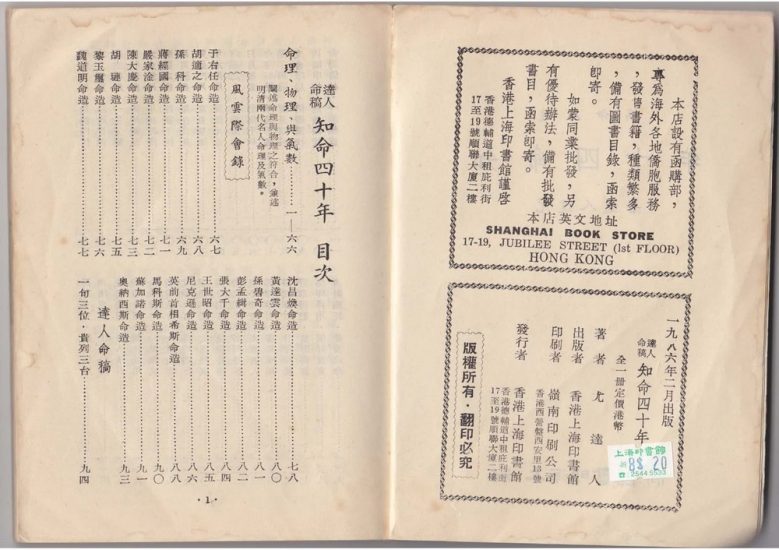 本店設有函購部，
專為海外各地僑胞服務
，發售書籍，種類繁多
，備有圖書目錄，函索
卽寄。
如蒙同業批發，另
有優待辦法，備有批發
書目，函索卽寄。
香港上海印書館謹啓
香港德輔道中租庇利街
17至19號順聯大廈二樓
本店英文地址
SHANGHAI BOOK STORE
17-19, JUBILEE STREET (1st FLOOR)
HONG KONG
一九八六年二月出版
達人命稿 知命四十年
全一册定價港幣
著者 尤達人
出版者 香港上海印書館
印刷者 嶺南印刷公司
香港西營盤西安里13號
發行者 香港上海印書館
香港德輔道中租庇利街
17至19號順聯大廈二樓
版權所有・翻印必究
上海印書館
8$ 20
2544 5533
達人命稿 知命四十年 目次
命理、物理、與氣數……一—六六
闡述命理與物理之符合，兼述
明清兩代名人命理及氣數。
風雲際會錄
于右任命造……六七
胡適之命造……六八
孫　科命造……六九
蔣經國命造……七一
嚴家淦命造……七二
陳大慶命造……七三
胡　璉命造……七五
黎玉璽命造……七六
魏道明命造……七七
沈昌煥命造……七八
黃達雲命造……八〇
孫碧奇命造……八一
彭孟緝命造……八二
張大千命造……八四
王世昭命造……八五
尼克遜命造……八六
英前首相希斯命造……八八
馬科斯命造……九〇
蘇加諾命造……九一
奧納西斯命造……九三
達人命稿
一旬三位，貴列三台……九四
・1・